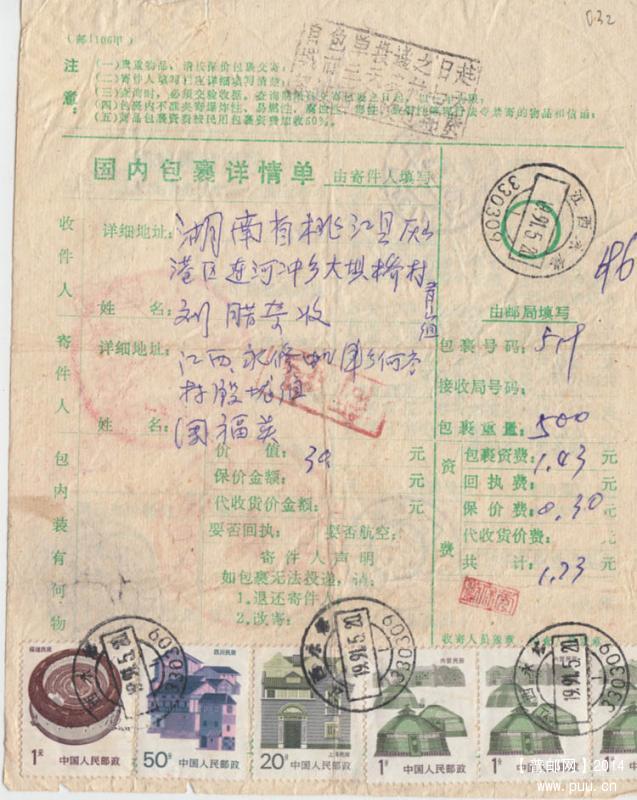 032
(邮1106甲)
注意:
(一)贵重物品,请按保价包裹交寄;
(二)寄件人填写栏应详细填写清楚;
(三)查询时,必须交验收据。
(四)包裹内不准夹寄爆炸性,易燃性,
(五)商品包裹资费按民用包裹资费加收50%。
国内包裹详情单 由寄件人填写
收件人
详细地址:湖南省桃江县灰山
港区连河冲乡大坝桥村
青 组
姓名:刘腊 收
寄件人
详细地址:江西永修
村段坳组
姓名:周福英
包内装有何物
价值:30 元
保价金额: 元
代收货价金额: 元
要否回执: 要否航空:
寄件人声明
如包裹无法投递,请:
1.退还寄件人
2.改寄:
江西永修
1991.5.20
330309
496
由邮局填写
包裹号码:519
接收局号码:
包裹重量:500
资费
包裹资费:1.43 元
回执费: 元
保价费:0.30 元
代收货价费: 元
共计:1.73 元
收寄人员签章
福建民居
1元
中国人民邮政
四川民居
50分
中国人民邮政
上海民居
20分
中国人民邮政
内蒙民居
1分
中国人民邮政
1分
中国人民邮政
330309
1991.5.20
330309
1991.5.20
330309
1991.5.20
【普邮网】2014
www.puu.cn